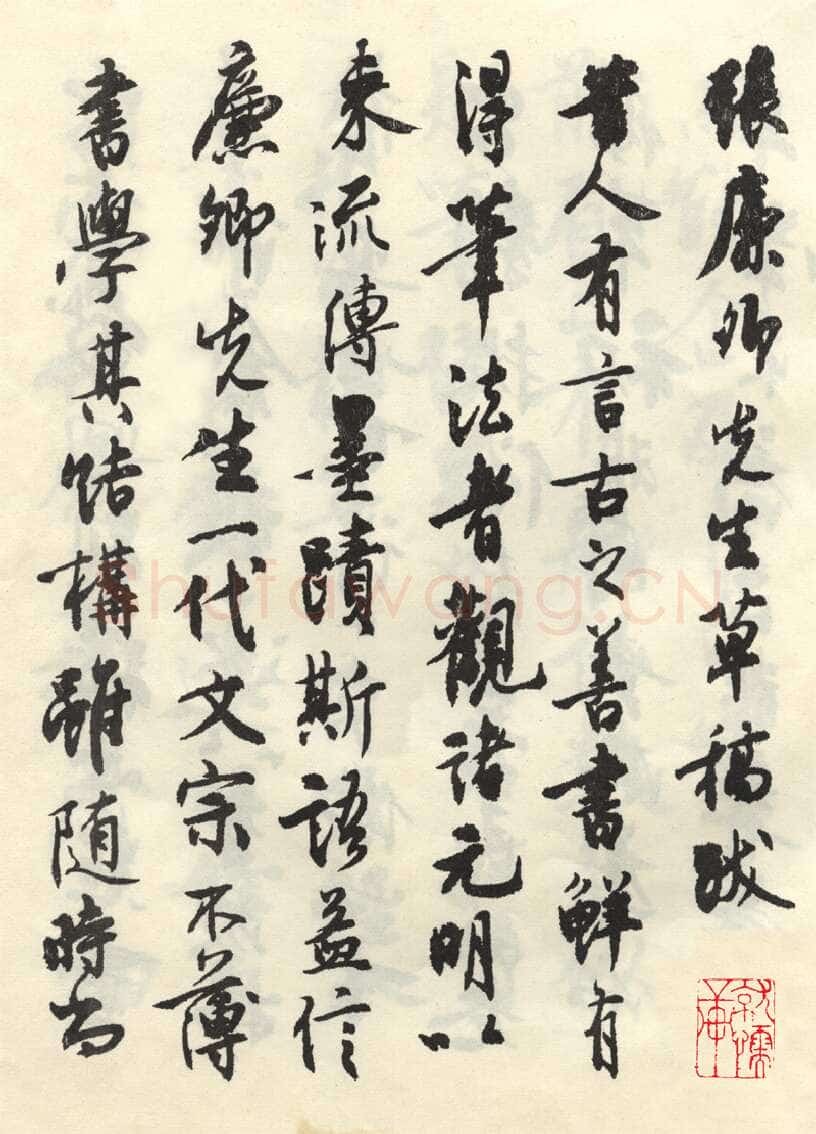 張廉卿先生草稿跋
昔人有言古之善書鮮有
得筆法者觀諸元明以
來流傳墨蹟斯語益信
廉卿先生一代文宗不薄
書學其結構雖随時尚
shufawang.CN